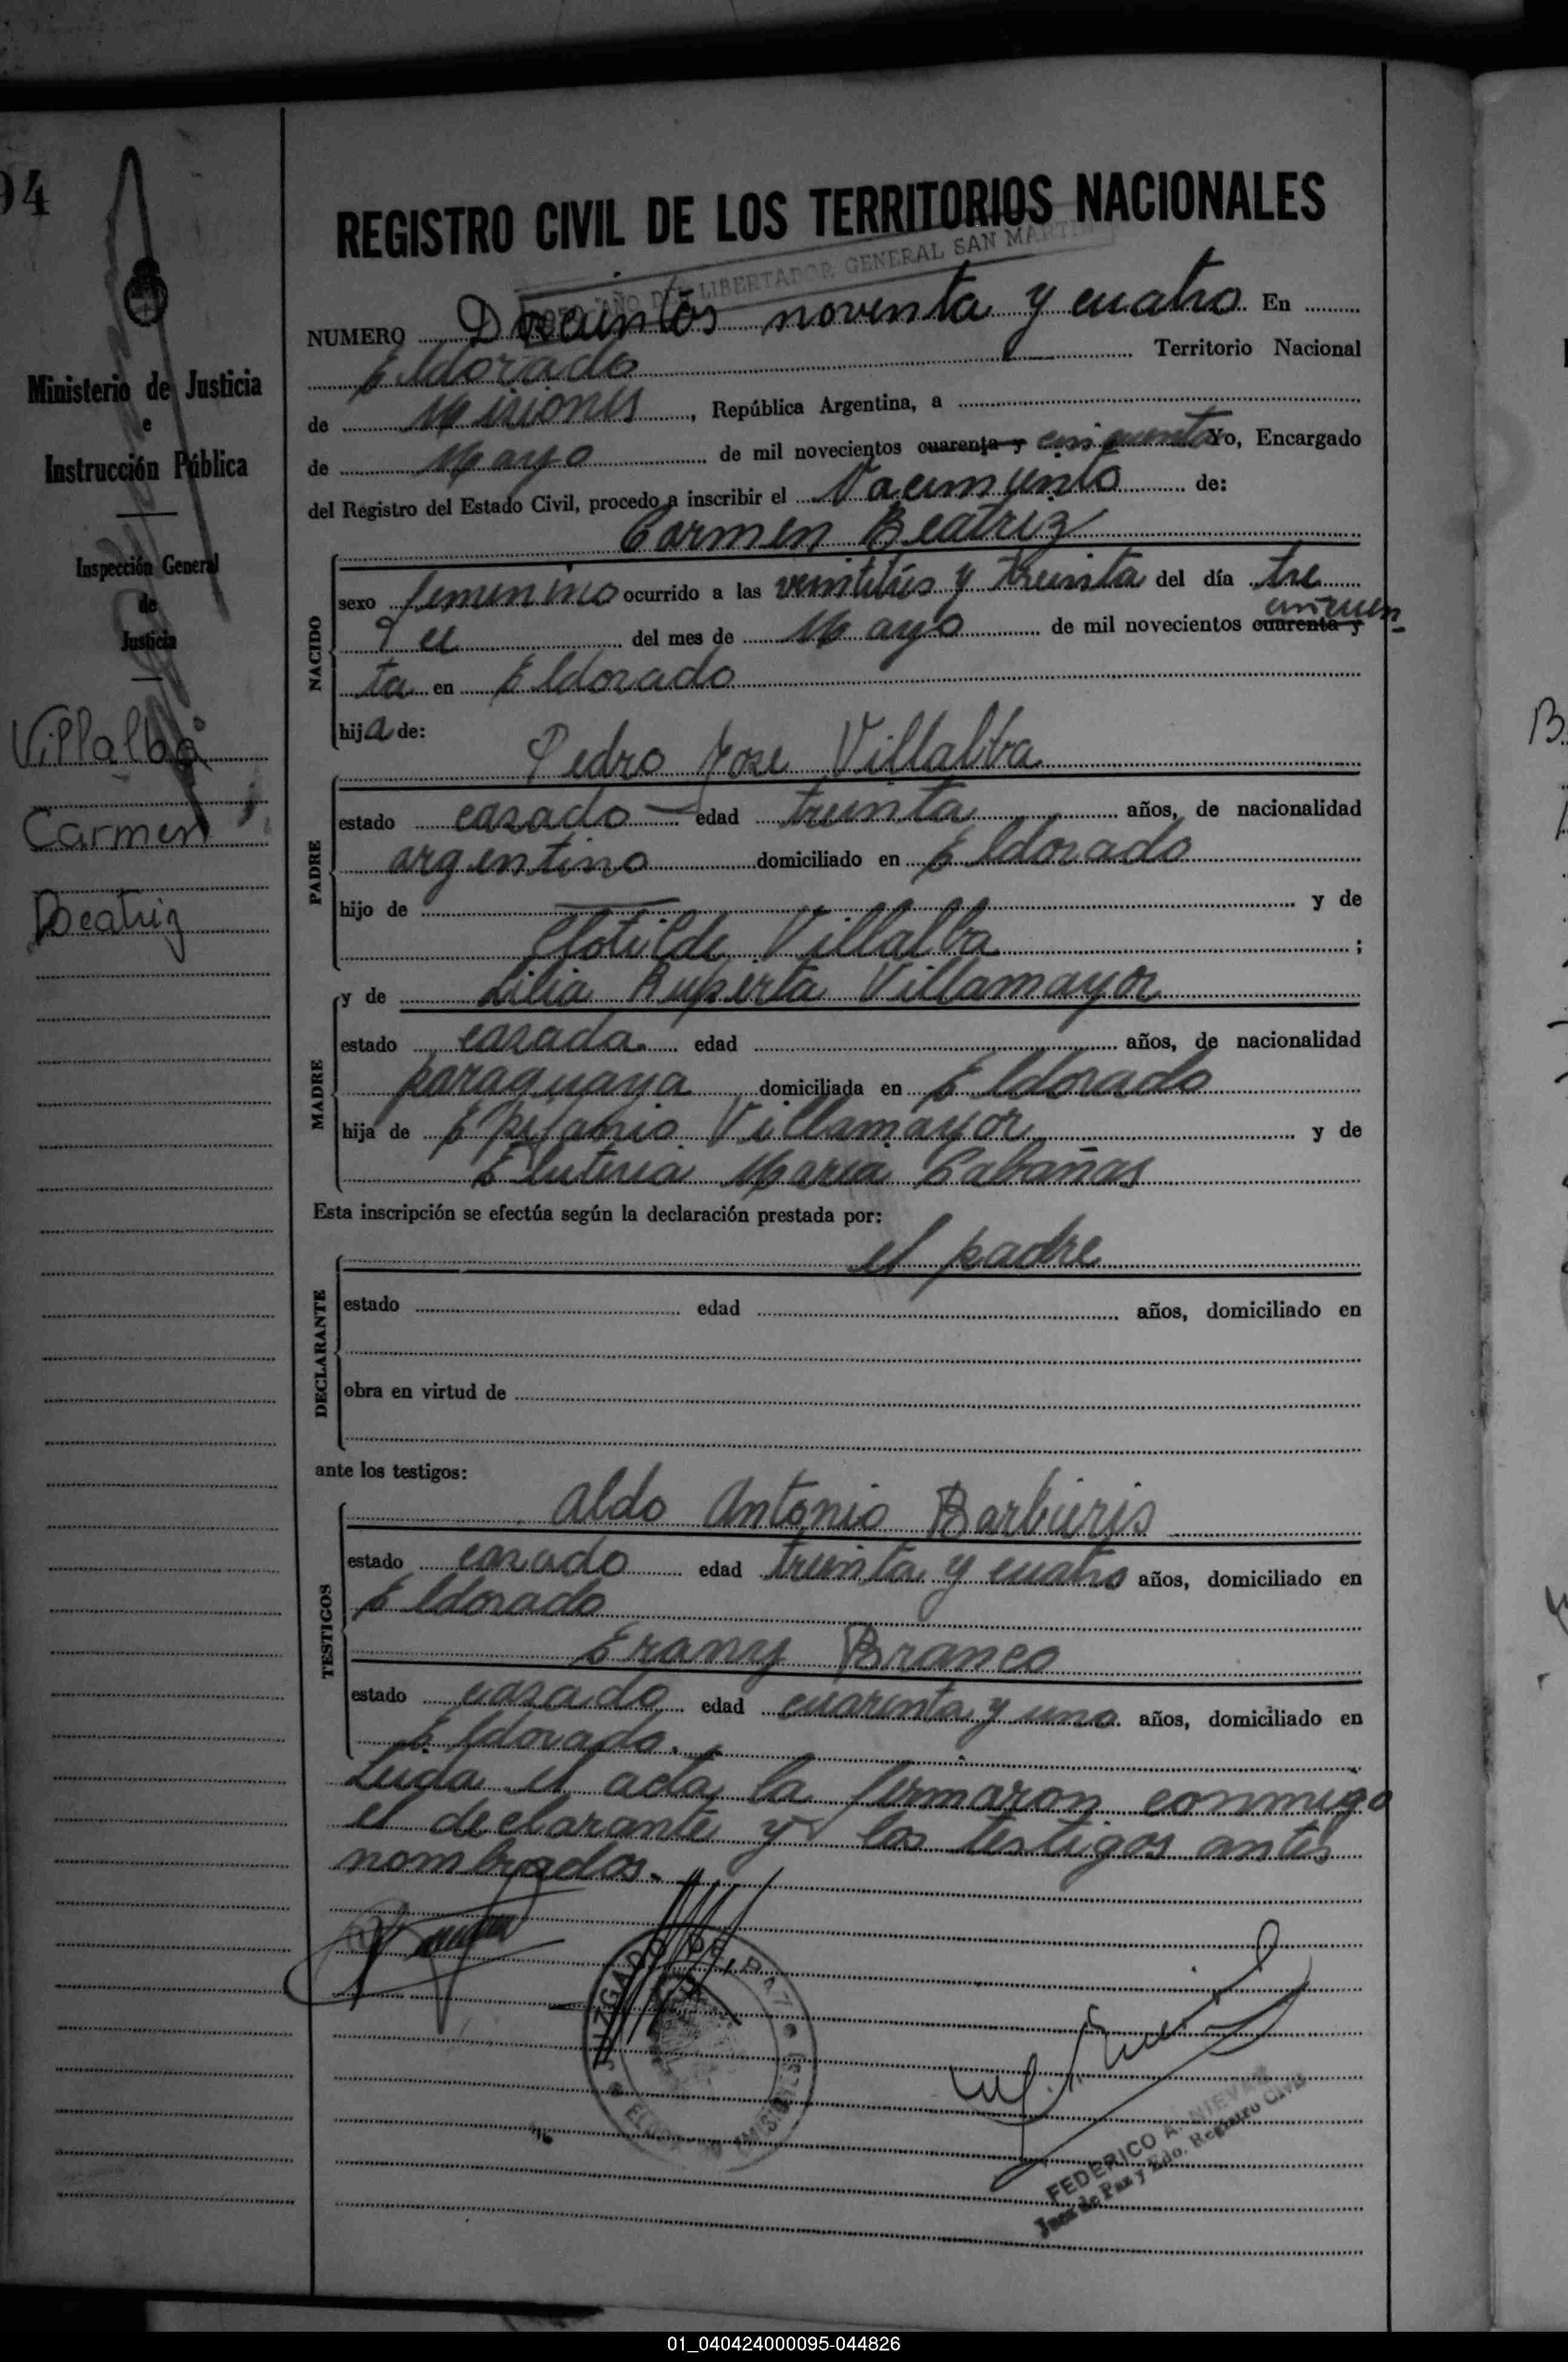 94
REGISTRO CIVIL DE LOS TERRITORIOS NACIONALES
AÑO DEL LIBERTADOR GENERAL SAN MARTIN
NUMERO Doscientos noventa y cuatro En
Eldorado Territorio Nacional
de Misiones, República Argentina, a
de Mayo de mil novecientos cuarenta y cincuenta Yo, Encargado
del Registro del Estado Civil, procedo a inscribir el Nacimiento de:
Carmen Beatriz
NACIDO
sexo femenino ocurrido a las veintitres y treinta del día tre
del mes de Mayo de mil novecientos cuarenta y cincuen-
ta en Eldorado
hija de:
Pedro Jose Villalba
PADRE
estado casado edad treinta años, de nacionalidad
argentino domiciliado en Eldorado
hijo de y de
Clotilde Villalba ;
MADRE
y de Lilia Ruperta Villamayor
estado casada. edad años, de nacionalidad
paraguaya domiciliada en Eldorado
hija de Epifanio Villamayor y de
Eleuteria Maria Cabañas
Esta inscripción se efectúa según la declaración prestada por:
el padre
DECLARANTE
estado edad años, domiciliado en
obra en virtud de
ante los testigos:
Aldo Antonio Barbieris
TESTIGOS
estado casado edad treinta y cuatro años, domiciliado en
Eldorado
Erany Branco
estado casado edad cuarenta y uno años, domiciliado en
Eldorado.
Leida el acta, la firmaron conmigo
el declarante y los testigos antes
nombrados.
JUZGADO DE PAZ
ELDORADO (MISIONES)
FEDERICO A. NIEVAS
Juez de Paz y Edo. Registro Civil
Ministerio de Justicia
e
Instrucción Pública
Inspección General
de
Justicia
Villalba
Carmen
Beatriz
01_040424000095-044826